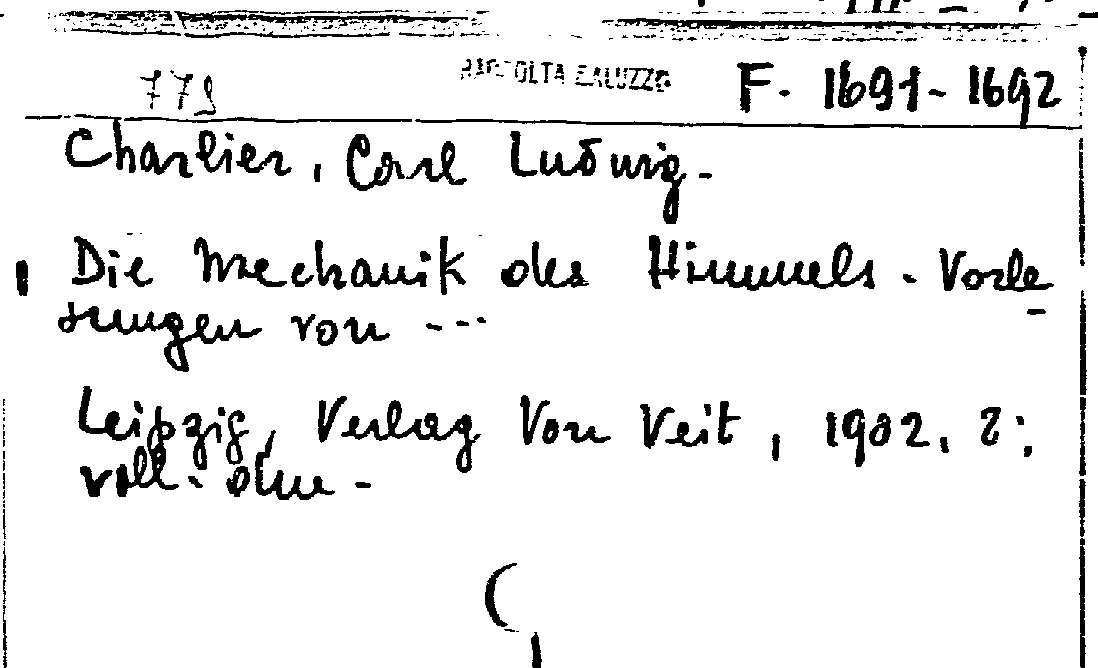 779 RACCOLTA SALUZZO F. 1691-1692
Charlier, Carl Ludwig.
Die Mechanik des Himmels. Vorle
sungen von ---
Leipzig, Verlag von Veit, 1902, 8°;
voll. due -